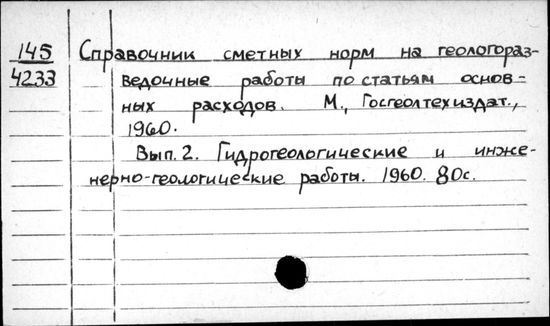 145 Справочник сметных норм на геологораз-
4233 ведочные работы по статьям основ-
ных расходов. М., Госгеолтехиздат.,
1960.
Вып. 2. Гидрогеологические и инже-
нерно-геологические работы. 1960. 80с.